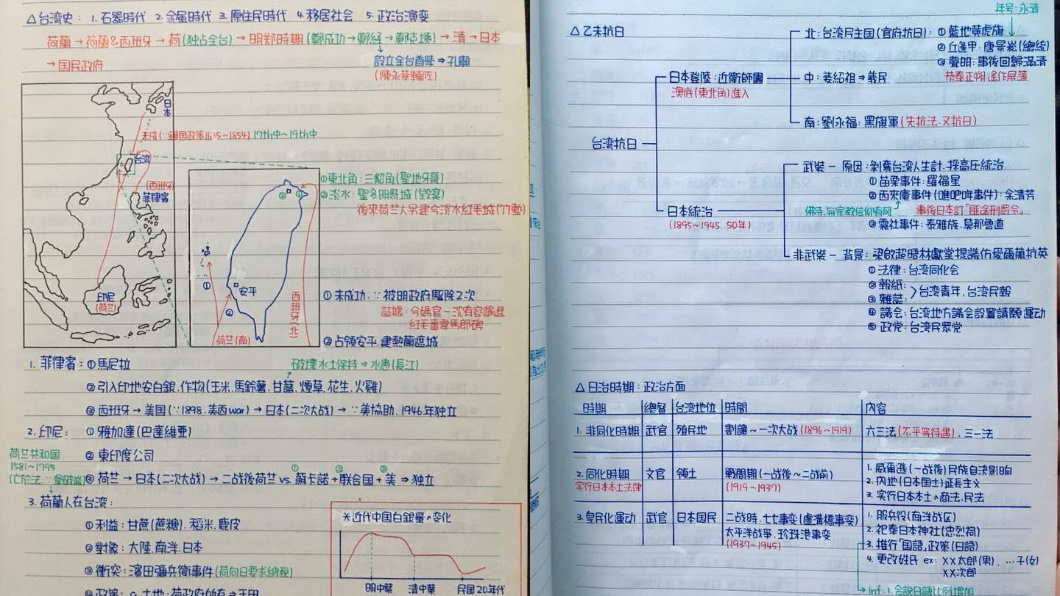 △台湾史：1.石器時代 2.金属時代 3.原住民時代 4.移居社会 5.政治演变
荷蘭→荷蘭&西班牙→荷(独占全台)→明郑時期(鄭成功→鄭經→鄭克塽)→清→日本
→国民政府
設立全台首学⇒孔廟
(陳永華輔佐)
日本
17th中~19th中
台湾
(西班牙)
菲律濱
印尼
(荷兰)
①東北角：三貂角(聖地牙哥)
②淡水：聖多明哥城(毀棄)
後來荷兰人另建今淡水紅毛城
安平
西班牙(北)
荷兰(南)
①未成功，∵被明政府驅除2次
②占領安平，建熱蘭遮城
1. 菲律賓：①馬尼拉
破壞水土保持⇒水患(長江)
②引入印地安白銀，作物(玉米，馬鈴薯，甘藷，煙草，花生，火雞)
③西班牙→美国(∵1898，美西war)→日本(二次大战)→∵美協助，1946年独立
2. 印尼：①雅加達(巴達維亞)
荷兰共和国
1581~1795
②東印度公司
③荷兰→日本(二次大战)→二战後荷兰 vs. 蘇卡諾+联合国+美⇒独立
3. 荷蘭人在台湾：
①利益：甘蔗(蔗糖)，稻米，鹿皮
②對象：大陸，南洋，日本
③衝突：濱田彌兵衛事件(荷向日要求納稅)
※近代中国白銀量の变化
明中葉 清中葉 民国20年代
年号：永清
△乙未抗日
台湾抗日
日本登陸：近衛師團
澳底(東北角)進入
北：台湾民主国(官府抗日)：①藍地黄虎旗
②丘逢甲，唐景崧(總統)
③聲明：事後回歸滿清
恭奉正朔，遙作屏藩
中：姜紹祖⇒義民
南：劉永福：黑旗軍(先抗法，又抗日)
日本統治
(1895~1945，50年)
武裝－原因：剝奪台湾人生計，提高压統治
①苗栗事件：羅福星
②西來庵事件(噍吧哖事件)：余清芳
事後日本訂「匪徒刑罰令」
③霧社事件：泰雅族，莫那魯道
非武裝－背景：梁啟超勸林獻堂提議仿愛爾蘭抗英
①法律：台湾同化会
②報紙：
③雜誌：
台湾青年，台湾民報
④議会：台湾地方議会設置請願運动
⑤政党：台湾民眾党
△日治時期：政治方面
時期 總督 台湾地位 時間 内容
1. 非同化時期 武官 殖民地 劉讓~一次大战(1896~1919) 六三法(不平等待遇)，三一法
2. 同化時期 文官 領土 戰間期(一战後~二战前) 1. 威爾遜(一战後)民族自決影响
实行日本本土法律 (1919~1937) 2. 内地(日本国土)延長主义
3. 实行日本本土の商法，民法
3. 皇民化運动 武官 日本国民 二战時，七七事变(盧溝橋事变) 1. 服兵役(南洋战区)
太平洋战爭，珍珠港事变 2. 祀奉日本神社(忠烈祠)
(1937~1945) 3. 推行「国語」政策(日語)
4. 更改姓氏 ex：XX太郎(男)，…子(女)
XX次郎